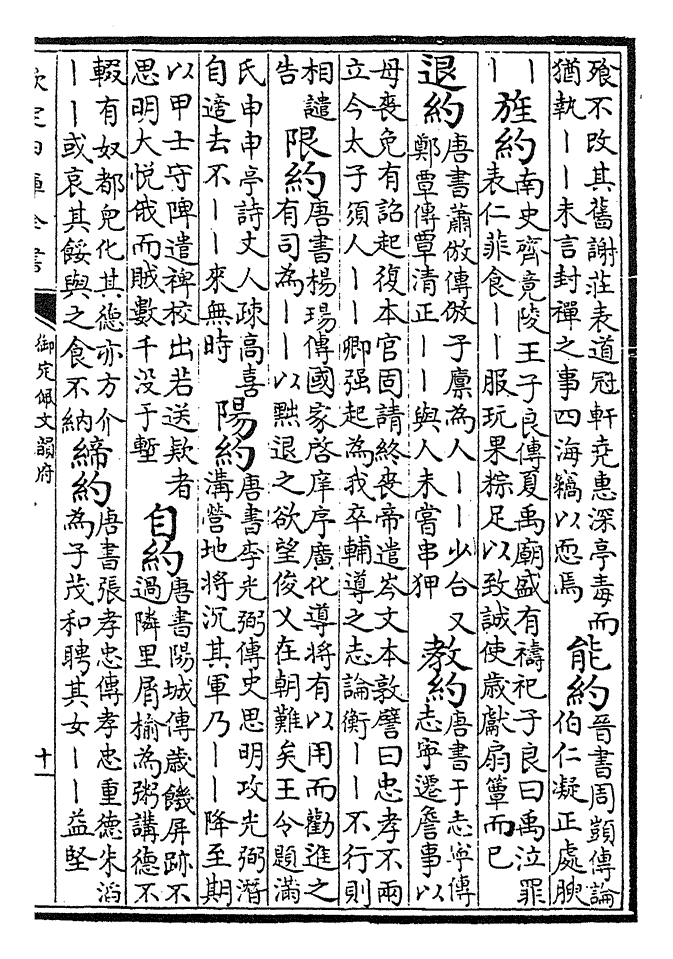 飱不改其舊謝莊表道冠軒堯惠深亭毒而
猶執丨丨未言封禪之事四海竊以恧焉
能約
晉書周顗傳論
伯仁凝正處腴
丨
丨
旌約
南史齊竟陵王子良傳夏禹廟盛有禱祀子良曰禹泣罪
表仁菲食丨丨服玩果粽足以致誠使歲獻扇簟而已
退約
唐書蕭倣傳倣子廪為人丨丨少合又
鄭覃傳覃清正丨丨與人未嘗串狎
教約
唐書于志寧傳
志寧遷詹事以
母喪免有詔起復本官固請終喪帝遣岑文本敦譬曰忠孝不兩
立今太子須人丨丨卿强起為我卒輔導之志論衡丨丨不行則
相譴
告
限約
唐書楊瑒傳國家啓庠序廣化導將有以用而勸進之
有司為丨丨以黜退之欲望俊乂在朝難矣王令題滿
氏申申亭詩丈人疎高喜
自遣去不丨丨來無時
陽約
唐書李光弼傳史思明攻光弼潛
溝營地將沉其軍乃丨丨降至期
以甲士守陴遣裨校出若送欵者
思明大悅俄而賊數千没于塹
自約
唐書陽城傳歲饑屏跡不
過隣里屑榆為粥講德不
輟有奴都兒化其德亦方介
丨丨或哀其餒與之食不納
締約
唐書張孝忠傳孝忠重德朱滔
為子茂和聘其女丨丨益堅
欽定四庫全書
御定佩文韻府
十一